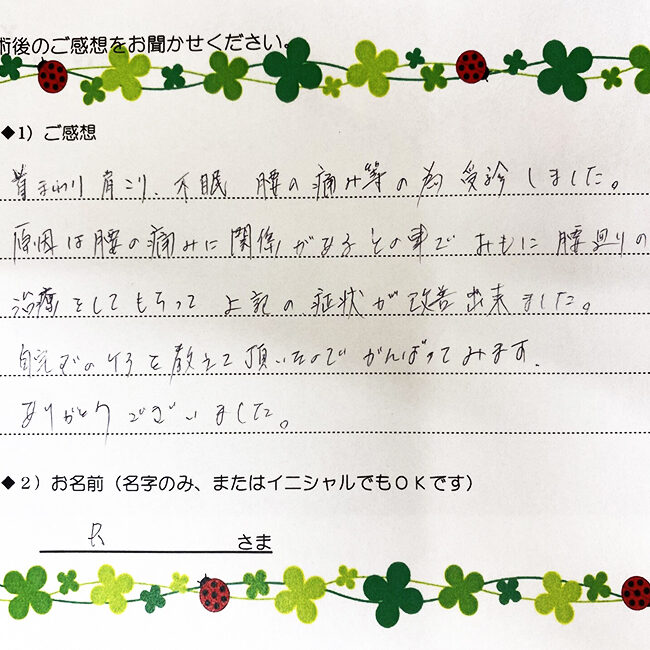 術後のご感想をお聞かせください。
◆1）ご感想
首まわり 肩こり、不眠 腰の痛み等の為 受診しました。
原因は腰の痛みに関係があるとの事で おもに腰廻りの
治療をしてもらって 上記の症状が改善出来ました。
自宅でのケアを教えて頂いたので がんばってみます.
ありがとうございました。
◆2）お名前（名字のみ、またはイニシャルでもＯＫです）
さま